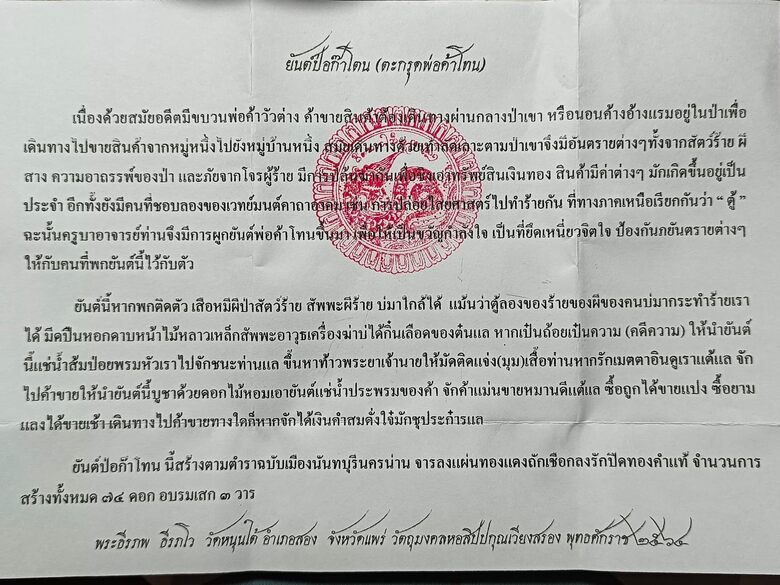 ยันต์ป้อก๊าโตน (ตะกรุดพ่อค้าโทน)
เนื่องด้วยสมัยอดีตมีขบวนพ่อค้าวัวต่าง ค้าขายสินค้าต้องเดินทางผ่านกลางป่าเขา หรือนอนค้างอ้างแรมอยู่ในป่าเพื่อ
เดินทางไปขายสินค้าจากหมู่หนึ่งไปยังหมู่บ้านหนึ่ง สมัยเดินทางด้วยเท้าลัดเลาะตามป่าเขาจึงมีอันตรายต่างๆทั้งจากสัตว์ร้าย ผี
สาง ความอาถรรพ์ของป่า และภัยจากโจรผู้ร้าย มีการปล้นฆ่ากันเพื่อชิงเอาทรัพย์สินเงินทอง สินค้ามีค่าต่างๆ มักเกิดขึ้นอยู่เป็น
ประจำ อีกทั้งยังมีคนที่ชอบลองของเวทย์มนต์คาถาอาคม เช่น การปล่อยไสยศาสตร์ไปทำร้ายกัน ที่ทางภาคเหนือเรียกกันว่า “ ตู้ ”
ฉะนั้นครูบาอาจารย์ท่านจึงมีการผูกยันต์พ่อค้าโทนขึ้นมา เพื่อให้เป็นขวัญกำลังใจ เป็นที่ยึดเหนี่ยวจิตใจ ป้องกันภยันตรายต่างๆ
ให้กับคนที่พกยันต์นี้ไว้กับตัว
ยันต์นี้หากพกติดตัว เสือหมีผีป่าสัตว์ร้าย สัพพะผีร้าย บ่มาใกล้ได้ แม้นว่าตู้ลองของร้ายของผีของคนบ่มากระทำร้ายเรา
ได้ มีดปืนหอกดาบหน้าไม้หลาวเหล็กสัพพะอาวุธเครื่องฆ่าบ่ได้กิ๋นเลือดของต๋นแล หากเป๋นถ้อยเป๋นความ (คดีความ) ให้นำยันต์
นี้แช่น้ำส้มป่อยพรมหัวเราไปจักชนะท่านแล ขึ้นหาท้าวพระยาเจ้านายให้มัดติดแจ่ง(มุม)เสื้อท่านหากรักเมตตาอินดูเราแต้แล จัก
ไปค้าขายให้นำยันต์นี้บูชาด้วยดอกไม้หอมเอายันต์แช่น้ำประพรมของค้า จักค้าแม่นขายหมานดีแต้แล ซื้อถูกได้ขายแปง ซื้อยาม
แลงได้ขายเช้า เดินทางไปค้าขายทางใดก็หากจักได้เงินคำสมดั่งใจ๋มักชุประก๋ารแล
ยันต์ป้อก๊าโทน นี้สร้างตามตำราฉบับเมืองนันทบุรีนครน่าน จารลงแผ่นทองแดงถักเชือกลงรักปิดทองคำแท้ จำนวนการ
สร้างทั้งหมด ๗๔ ดอก อบรมเสก ๓ วาร
พระธีรภพ ธีรภโว วัดหนุนใต้ อำเภอสอง จังหวัดแพร่ วัตถุมงคลหอสิปปคุณเวียงสรอง พุทธศักราช ๒๕๖๔